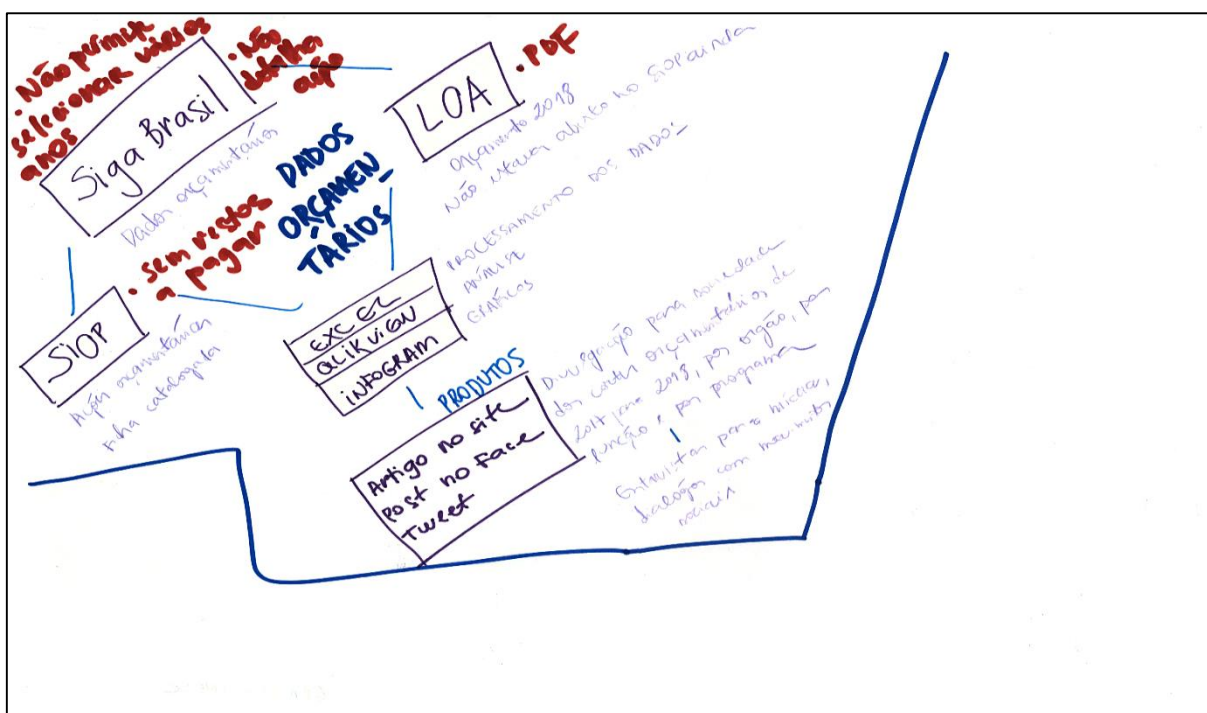 . Não permite
selecionar vários
anos
. Não
detalha
ação
Siga Brasil
Dados orçamentários
LOA
. PDF
Orçamento 2018
não estava aberto no SIOP ainda
DADOS
ORÇAMEN_
TÁRIOS
. sem restos
a pagar
SIOP
Ação orçamentária
catalogada
EXCEL
QLIKVIEW
INFOGRAM
PROCESSAMENTO DOS DADOS
ANÁLISE
GRÁFICOS
PRODUTOS
Artigo no site
Post no Face
Tweet
Divulgação para sociedade
dos cortes orçamentários de
2017 para 2018, por órgão, por
função, por programa
Entrevistas para mídias,
diálogos com movimentos
sociais